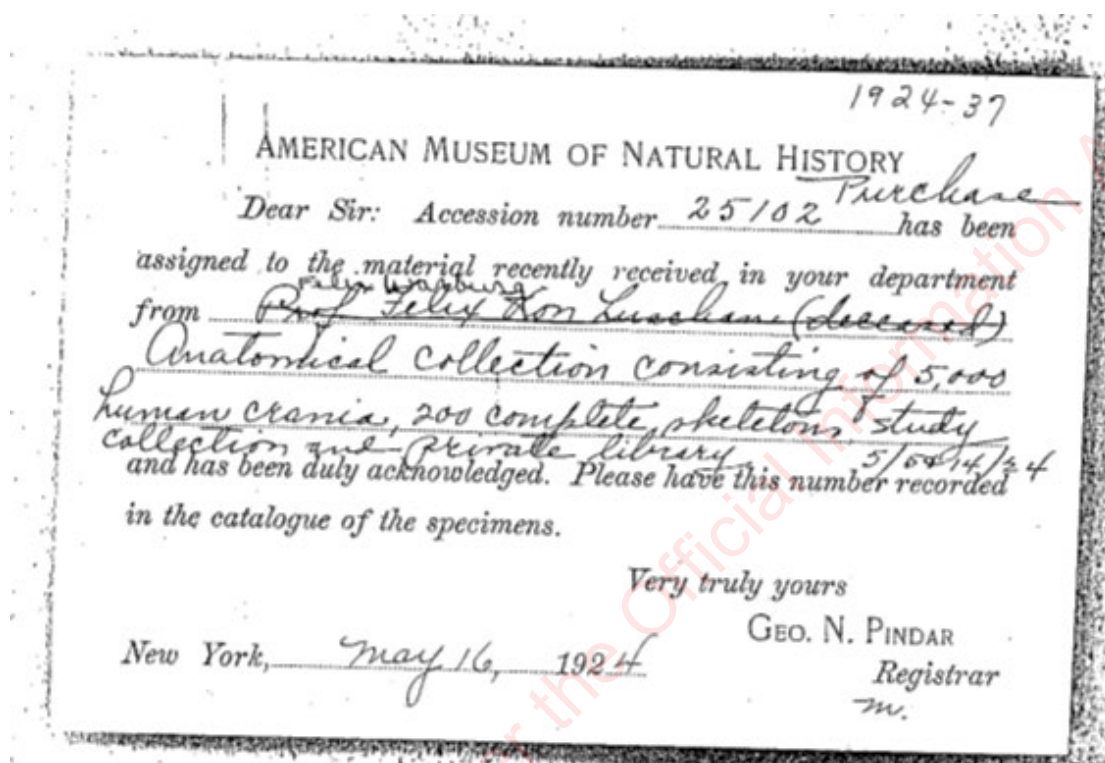 1924-37
AMERICAN MUSEUM OF NATURAL HISTORY
Purchase
Dear Sir: Accession number 25102 has been
assigned to the material recently received in your department
Felix Warburg
from Prof Felix Von Luschan (deceased)
Anatomical collection consisting of 5,000
human crania, 200 complete skeletons, study
collection and private library 5/5&14/24
and has been duly acknowledged. Please have this number recorded
in the catalogue of the specimens.
Very truly yours
GEO. N. PINDAR
New York, May 16, 1924 Registrar
m.
r the Official Information A